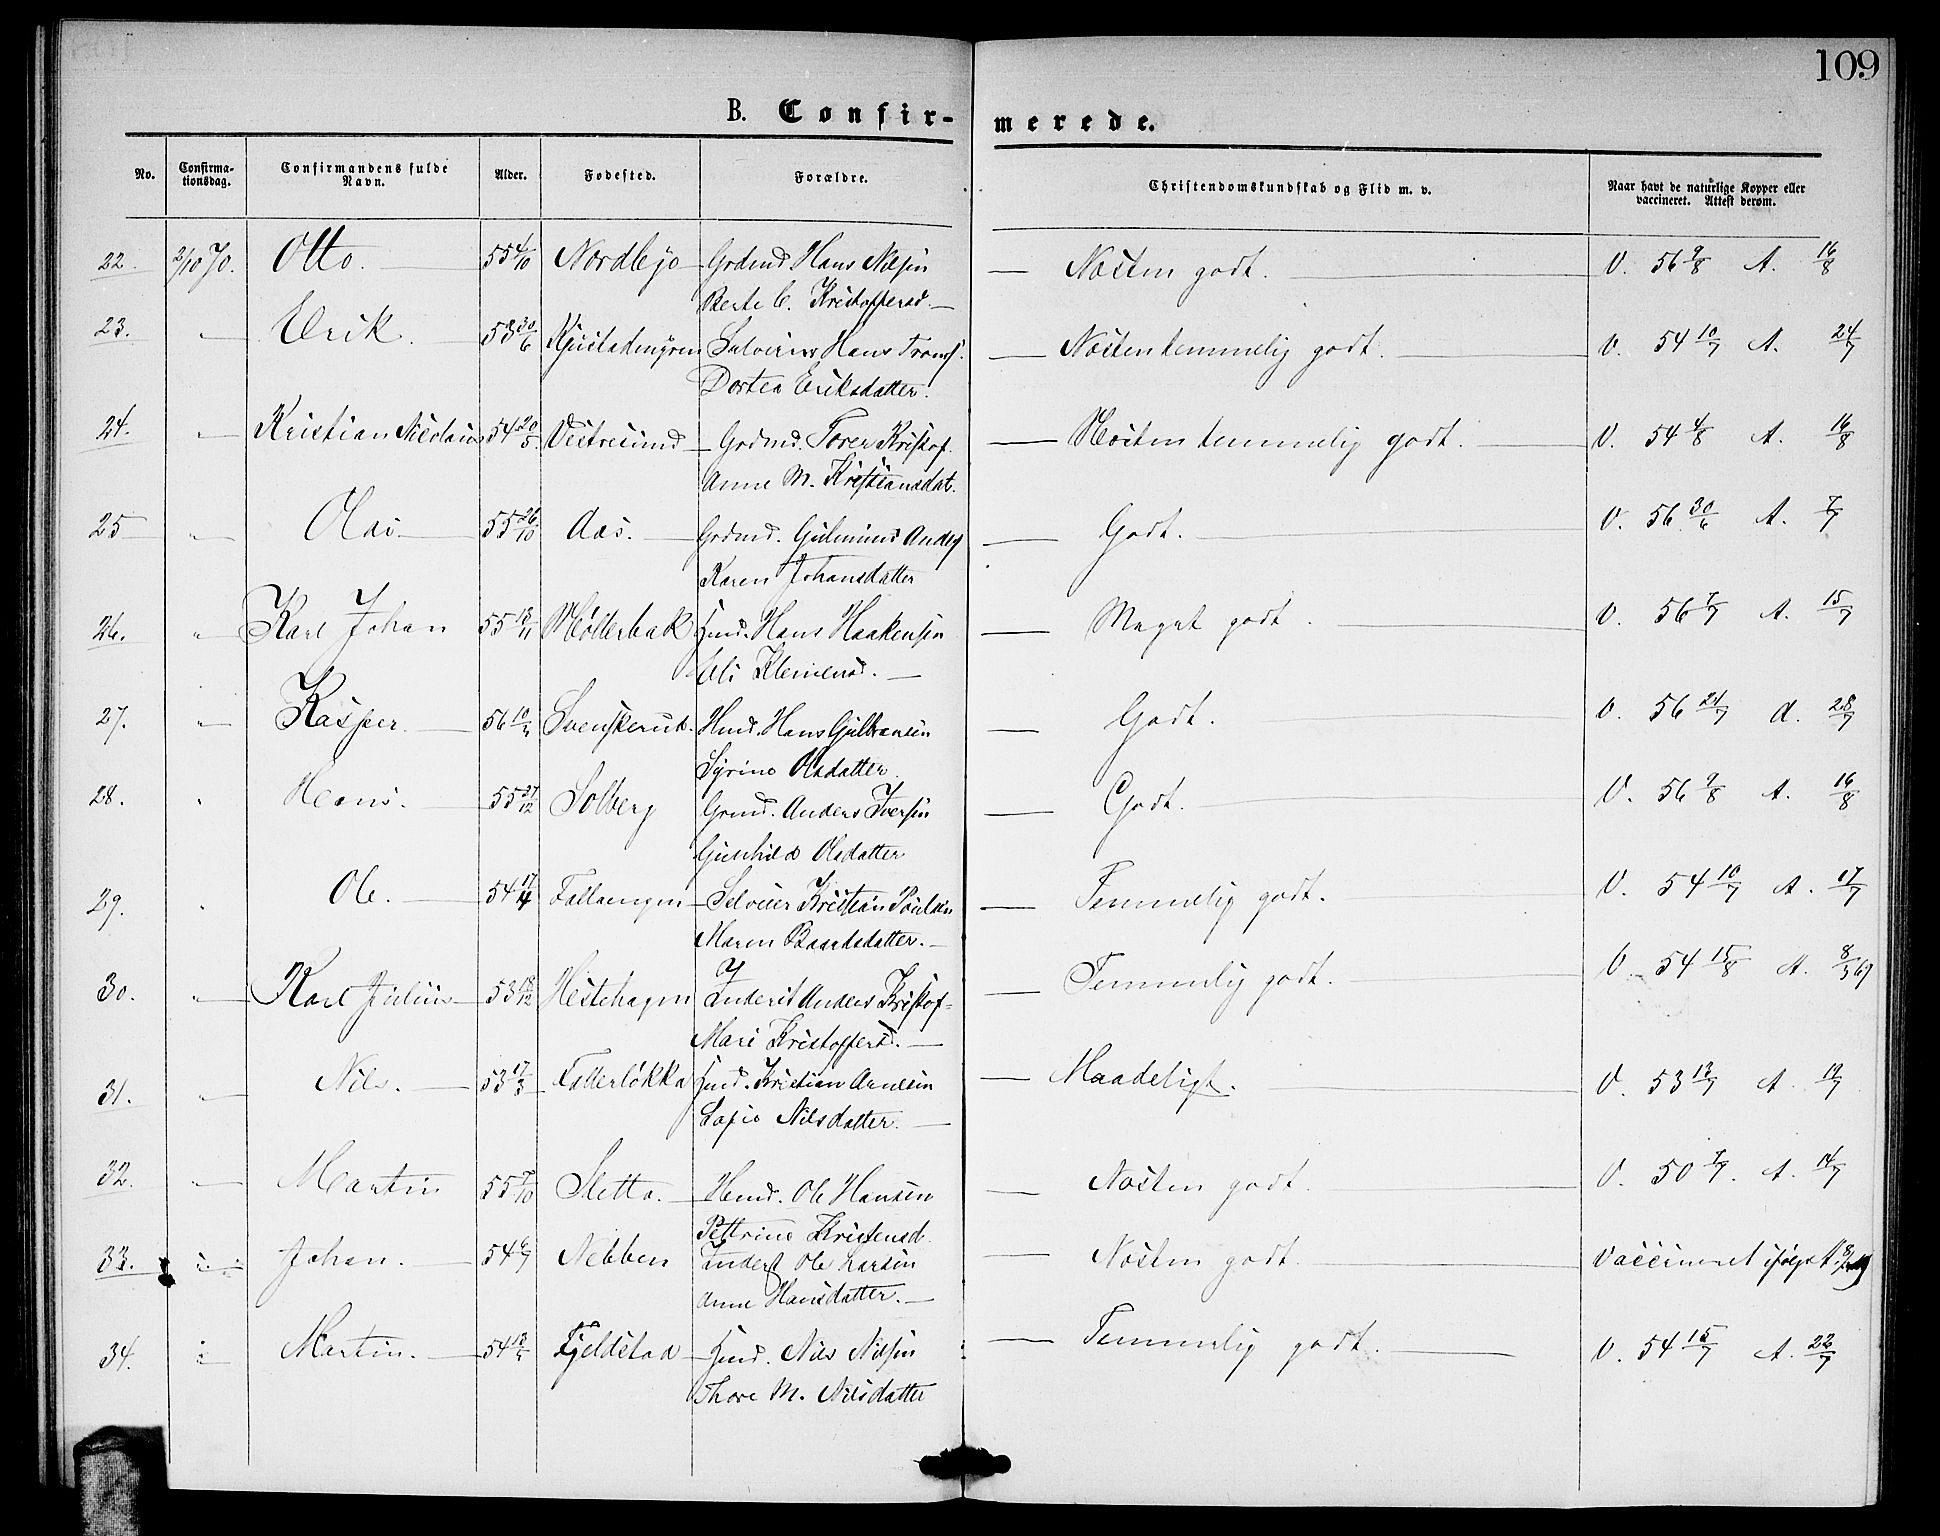 109
B. Confir-merede.
No. Confirma-tionsdag. Confirmandens fulde Navn. Alder. Fødested. Forældre. Christendomskundskab og Flid m. v. Naar havt de naturlige Kopper eller vaccineret. Attest derom.
22. 2/10 70. Otto. 55 4/10 Nordbye Grdmd Hans Nilsen Næsten godt. V. 56 9/8 A. 16/8
Berte C. Kristoffersd.
23. " Erik. 53 30/6 Selveier Hans Næsten temmelig godt. V. 54 10/7 A. 24/7
Dortea Eriksdatter.
24. " Kristian Nicolai 54 20/5. Vestresund Grdmd. Toren Kristof. Næsten temmelig godt. V. 54 4/8 A. 16/8
Anne M. Kristiansdat.
25 " Olai 55 26/10 Aas. Grdmd. Gulmund Anders Godt. V. 56 30/6 A. 7/7
Karen Johansdatter
26. " Karl Johan 55 13/11 Møllerbak Hmd. Hans Haakensen Meget godt. V. 56 7/7 A. 15/7
Eli Klemensd.
27. " Kasper. Svenskerud. Hmd. Hans Gulbransen Godt. V. 56 24/7 A. 28/7
Syrine Olsdatter.
28. " Hans. 55 27/12 Solberg Grmd. Anders Iversen Godt. V. 56 9/8 A. 16/8
Gunhild Olsdatter
29. " Ole. 54 17/4 Fallaengen Selveier Kristian Poulsen Temmelig godt. V. 54 10/7 A. 17/7
Maren Baardsdatter.
30. " Karl Julius 53 18/12 Hestehagen Inderst Anders Kristof- Temmelig godt. V. 54 15/8 A. 8/3 69
Mari Kristoffersd.
31. " Nils. 53 17/3 Fallerløkka Hmd. Kristian Arnesen Maadeligt. V. 53 12/7 A. 19/7
Sofie Nilsdatter.
32. " Martin 55 7/10 Sletta. Hmd. Ole Hansen Næsten godt. V. 50 7/7. A. 14/7
Pettrine Kristensd.
33. " Johan. 54 6/7 Nebben Inderst Ole Larsen Næsten godt. Vaccineret ifølge A.
Anne Hansdatter.
34. " Martin. Fjeldstad Hmd. Nils Nilsen Temmelig godt. V. 54 15/7 A. 22/7
Thore M. Nilsdatter